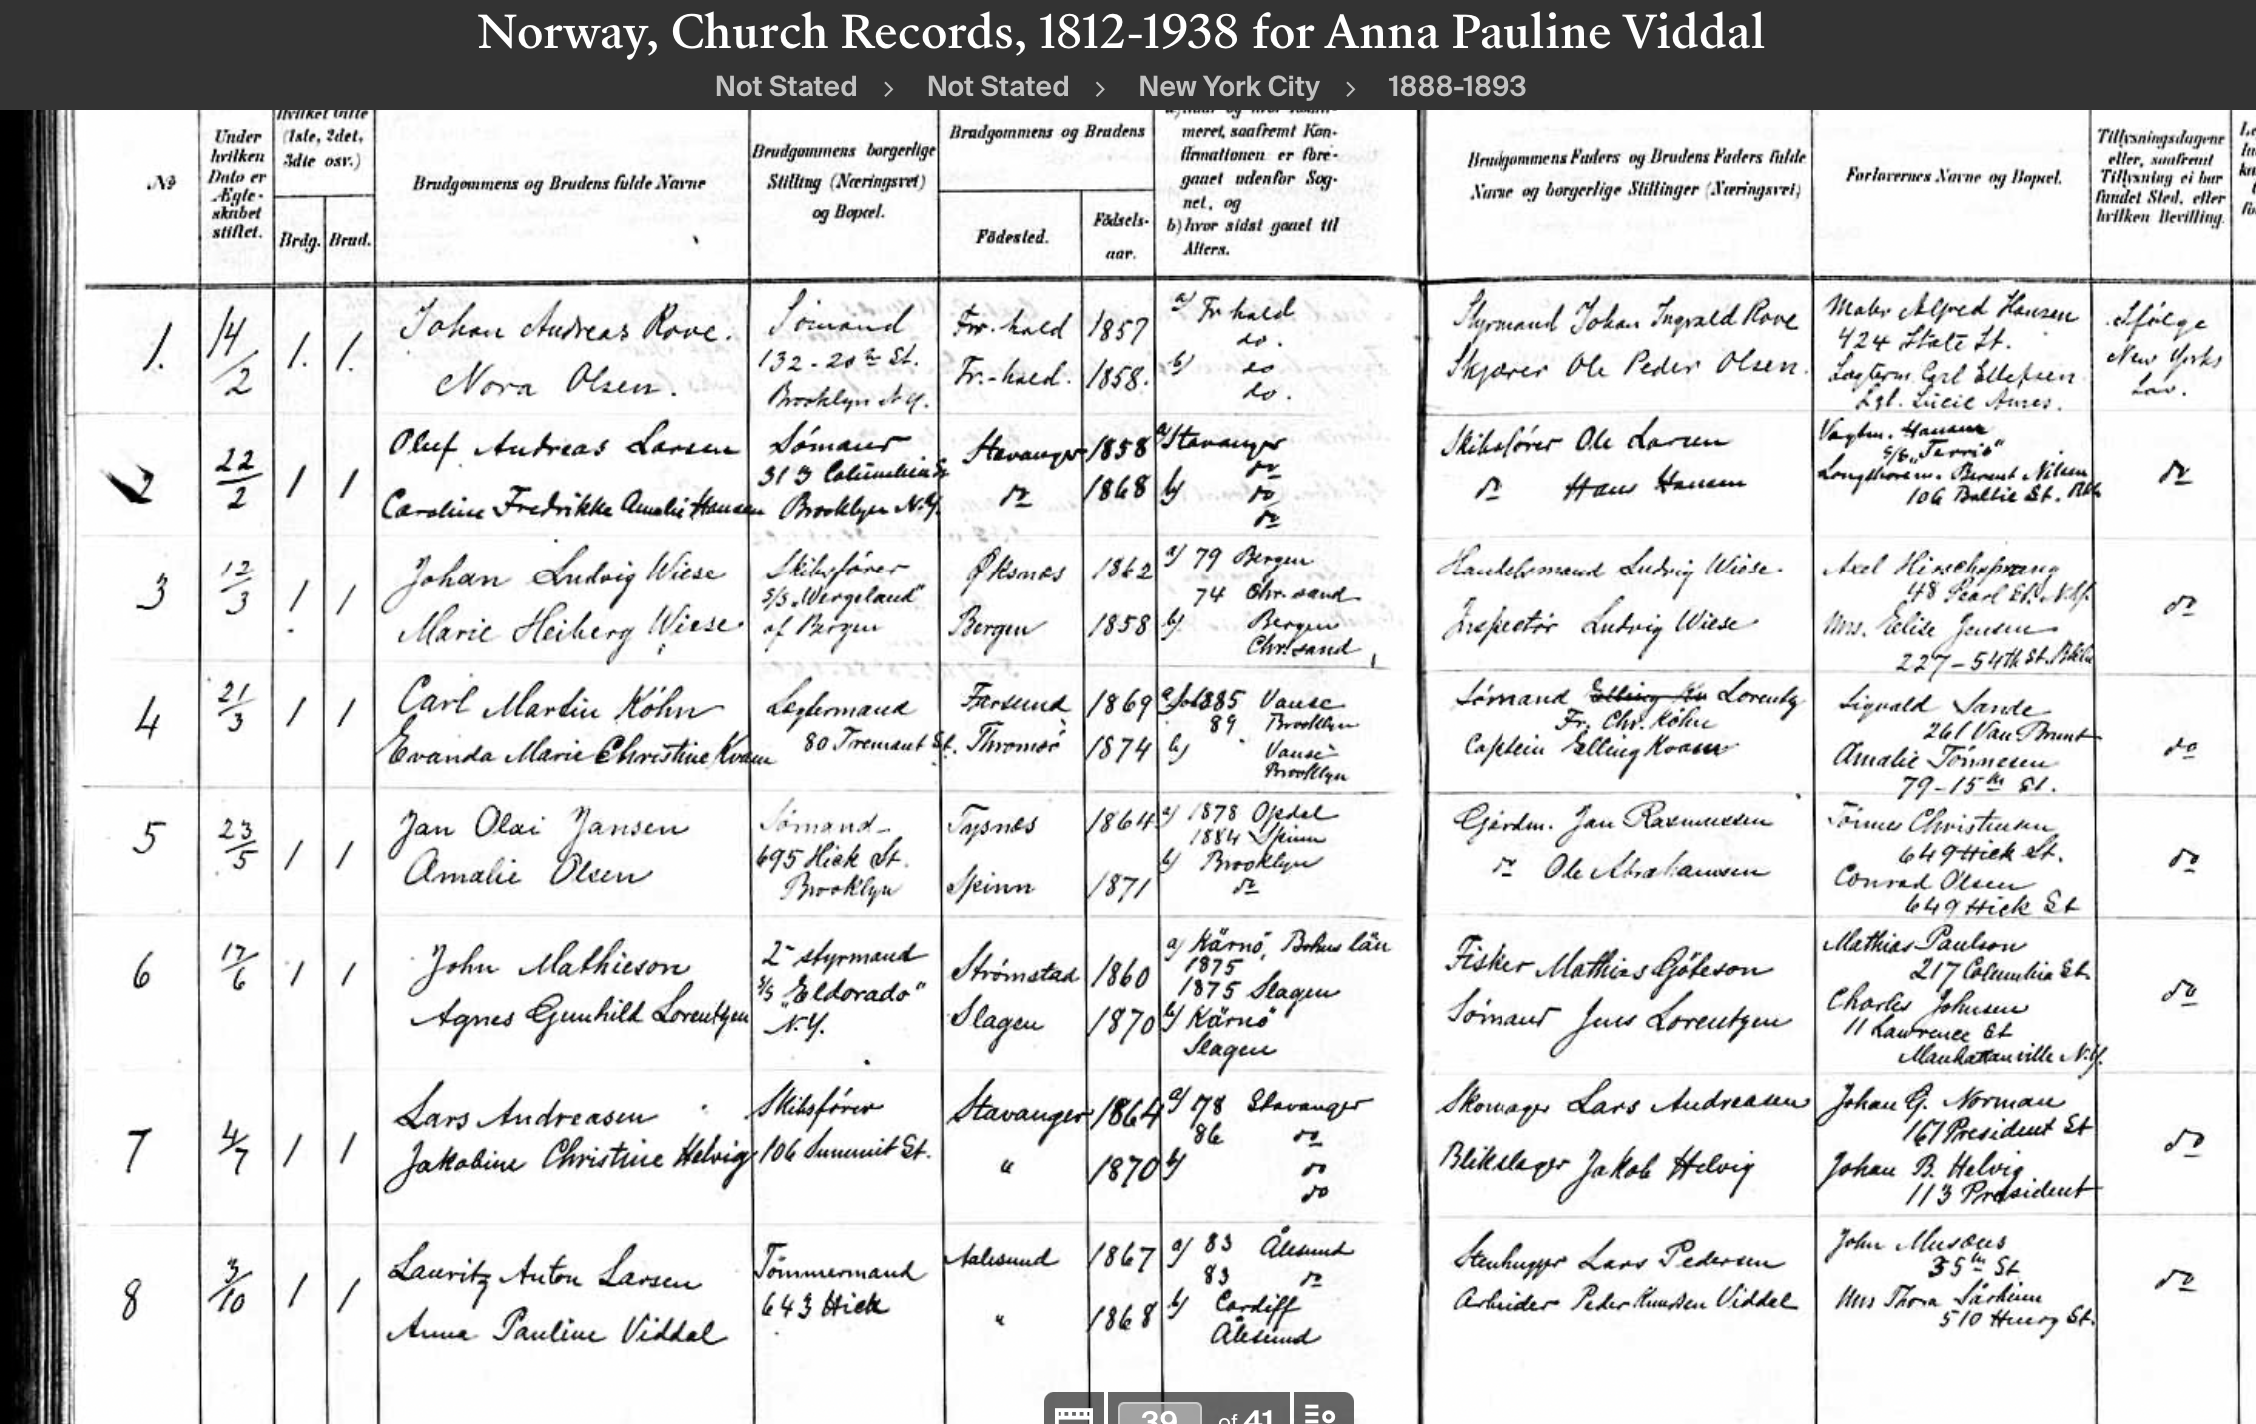 Norway, Church Records, 1812-1938 for Anna Pauline Viddal
Not Stated > Not Stated > New York City > 1888-1893
No
Under hvilken Dato er Ægte-skabet stiftet.
(1ste, 2det, 3die osv.)
Brdg. Brud.
Brudgommens og Brudens fulde Navne
Brudgommens borgerlige Stilling (Næringsvei) og Bopæl.
Brudgommens og Brudens
Födested.
Födsels-aar.
meret, saafremt Kon-
firmationen er fore-
gaaet udenfor Sog-
net, og
b) hvor sidst gaaet til
Alters.
Brudgommens Faders og Brudens Faders fulde
Navne og borgerlige Stillinger (Næringsvei)
Forlovernes Navne og Bopæl.
Tillysningsdagene
eller, saafremt
Tillysning ei har
fundet Sted, efter
hvilken Bevilling.
1. 14/2 1. 1.
Johan Andreas Rove.
Nora Olsen.
Sømand
132 - 20th St.
Brooklyn N.Y.
Fr.hald 1857
Fr.-hald. 1858.
a) Fr.hald
do.
b) do
do.
Styrmand Johan Ingvald Rove
Skjærer Ole Peder Olsen.
Maler Alfred Hansen
424 State St.
Carl Ellefsen
Ifölge
New Yorks
Lov.
2 22/2 1 1
Oluf Andreas Larsen
Caroline Fredrikke Amalie Hansen
Sømand
313 Columbia St
Brooklyn N.Y.
Stavanger 1858
do 1868
a) Stavanger
do
b) do
do
Skibsfører Ole Larsen
do Hans Hansen
Hansen
Berent Nilsen
106 Baltic St.
do
3 12/3 1 1
Johan Ludvig Wiese
Marie Heiberg Wiese
Skibsfører
S/S "Wergeland"
af Bergen
Øksnes 1862
Bergen 1858
a) 79 Bergen
74 Chr.sand
b) Bergen
Chr.sand
Handelsmand Ludvig Wiese.
Inspektör Ludvig Wiese
Axel Hirschsprung
48 Pearl St. N.Y.
Mrs. Elise Jensen
227 - 54th St. Bkln
do
4 21/3 1 1
Carl Martin Köhn
Evanda Marie Christine Kvam
80 Tremont St.
Farsund 1869
Thromsö 1874
1885 Vanse
89 Brooklyn
b) Vanse
Brooklyn
Sømand Lorentz
Fr. Chr. Köhn
Captein Elling Kvam
Sigvald Sande
261 Van Brunt
Amalie Tönnesen
79 - 15th St.
do
5 23/5 1 1
Jan Olai Jansen
Amalie Olsen
Sømand
695 Hick St.
Brooklyn
Tysnes 1864
Spinn 1871
a) 1878 Opdal
1884 Spinn
b) Brooklyn
do
Gårdm. Jan Rasmussen
do Ole Abrahamsen
Tönnes Christensen
649 Hick St.
Conrad Olsen
649 Hick St
do
6 17/6 1 1
John Mathieson
Agnes Gunhild Lorentzen
2- styrmand
S/S "Eldorado"
N.Y.
Strömstad 1860
Slagen 1870
a) Kärnö, Bohus län
1875
1875 Slagen
b) Kärnö
Slagen
Fisker Mathias Göteson
Sømand Jens Lorentzen
Mathias Paulson
217 Columbia St.
Charles Johnsen
11 Lawrence St
Manhattanville N.Y.
do
7 4/7 1 1
Lars Andreasen
Jakobine Christine Helvig
Skibsfører
106 Summit St.
Stavanger 1864
" 1870
a) 78 Stavanger
86 do
b) do
do
Skomager Lars Andreasen
Blikslager Jakob Helvig
Johan G. Norman
167 President St
Johan B. Helvig
113 President
do
8 3/10 1 1
Lauritz Anton Larsen
Anna Pauline Viddal
Tömmermand
643 Hick
Aalesund 1867
" 1868
a) 83 Ålesund
83 do
b) Cardiff
Ålesund
Stenhugger Lars Pedersen
Arbeider Peder Knudsen Viddal
John Musæus
35th St
Mrs Thora
510 Henry St.
do
39 of 41